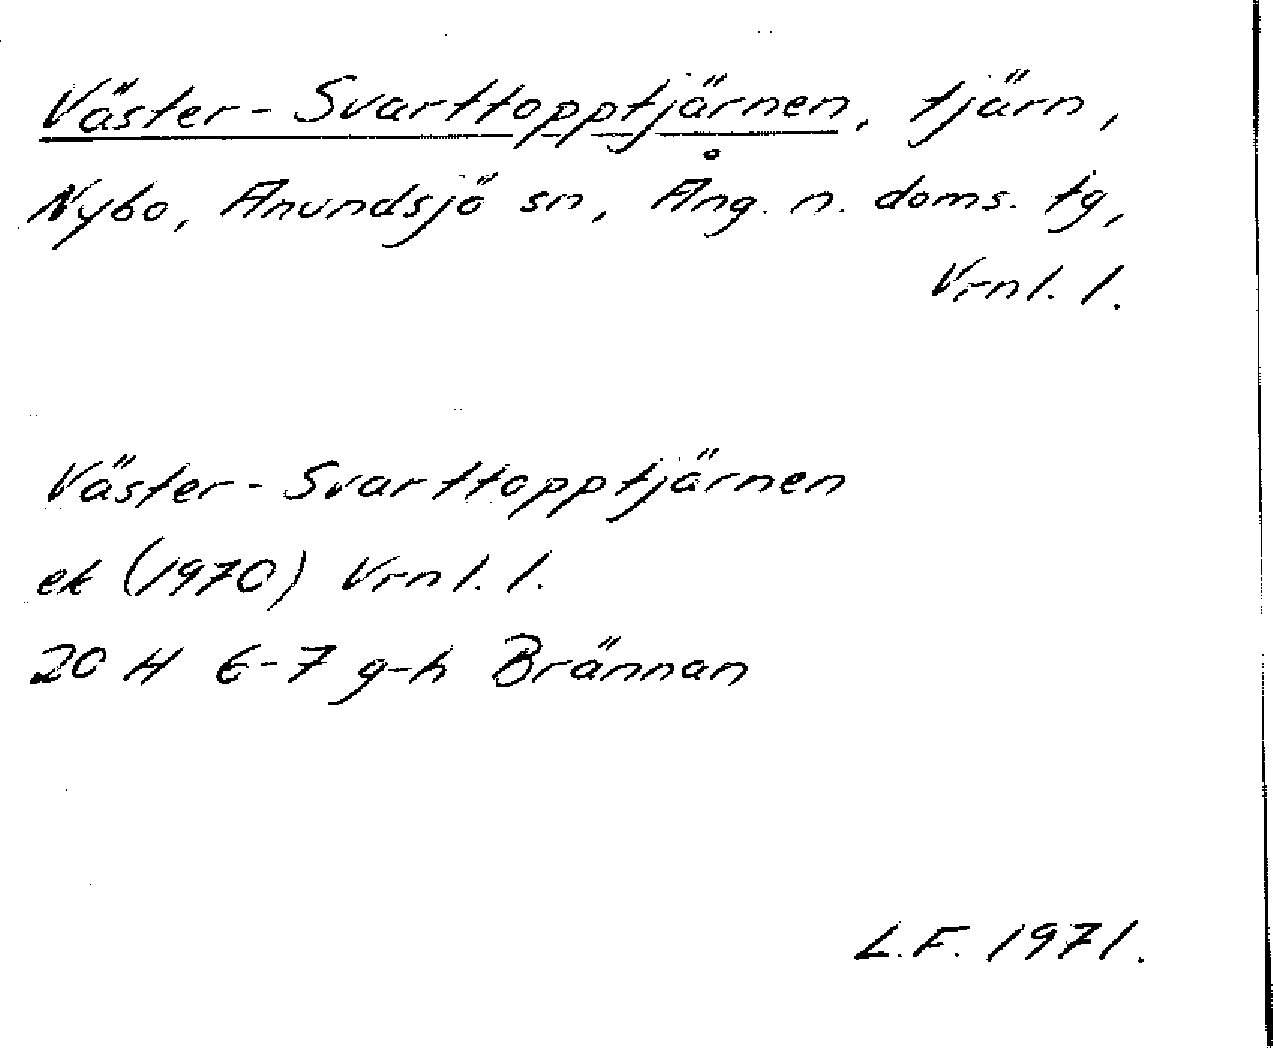 Väster-Svarttopptjärnen, tjärn,
Nybo, Anundsjö sn, Ång. n. doms. tg,
Vrnl. l.
Väster-Svarttopptjärnen
ek (1970) Vrnl. l.
20 H 6-7 g-h Brännan
L.F. 1971.